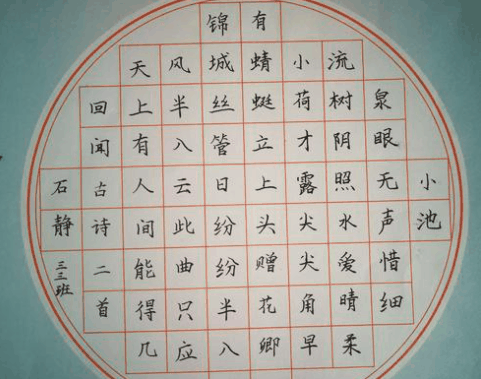 小池
泉眼无声惜细
流树阴照水爱晴柔
小荷才露尖尖角早
有蜻蜓立上头赠花卿
锦城丝管日纷纷半入
风半入云此曲只应
天上有人间能得几
回闻古诗二首
石静三三班